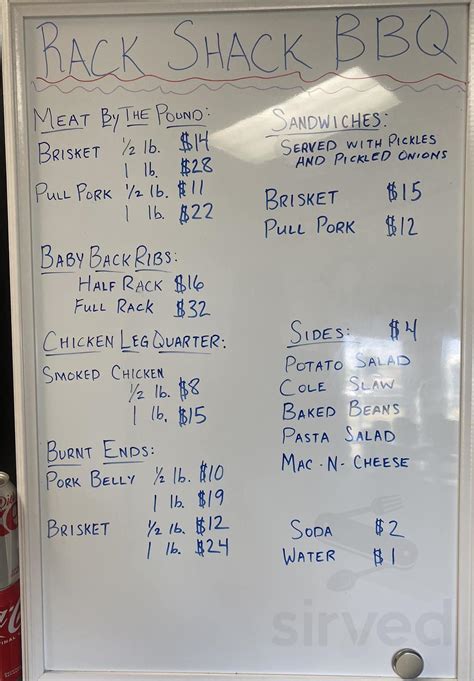 RACK SHACK BBQ
MEAT BY THE POUND:
BRISKET 1/2 lb. $14
1 lb. $28
PULL PORK 1/2 lb. $11
1 lb. $22
BABY BACK RIBS:
HALF RACK $16
FULL RACK $32
CHICKEN LEG QUARTER:
SMOKED CHICKEN
1/2 lb. $8
1 lb. $15
BURNT ENDS:
PORK BELLY 1/2 lb. $10
1 lb. $19
BRISKET 1/2 lb. $12
1 lb. $24
SANDWICHES:
SERVED WITH PICKLES
AND PICKLED ONIONS
BRISKET $15
PULL PORK $12
SIDES: $4
POTATO SALAD
COLE SLAW
BAKED BEANS
PASTA SALAD
MAC-N-CHEESE
SODA $2
WATER $1
sirved